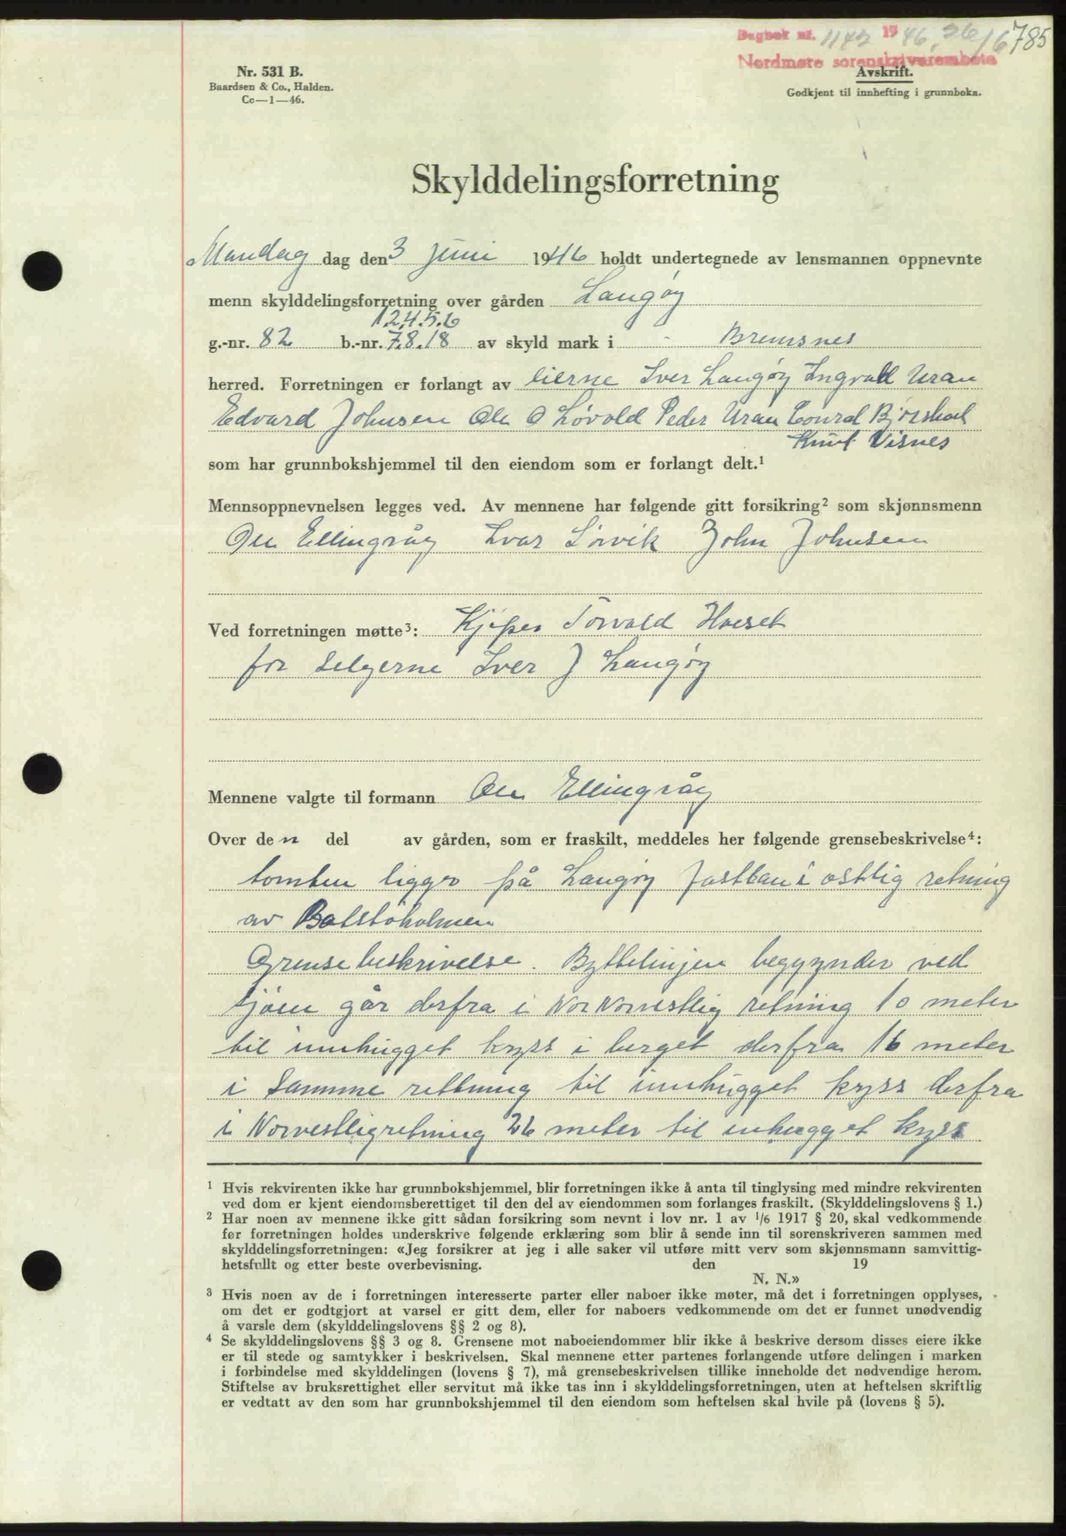 Dagbok nr. 1142 1946, 26/6 785
Nordmøre sorenskriverembete
Nr. 531 B.
Baardsen & Co., Halden.
Cc—1—46.
Avskrift.
Godkjent til innhefting i grunnboka.
Skylddelingsforretning
Mandag dag den 3 Juni 1946 holdt undertegnede av lensmannen oppnevnte
menn skylddelingsforretning over gården Langøy
1.2.4.5.6
g.-nr. 82 b.-nr. 7.8.18 av skyld mark i Bremsnes
herred. Forretningen er forlangt av eierne Iver Langøy Ingvald Uran
Edvard Johnsen Ole O Løvold Peder Uran Conrad
Knut Visnes
som har grunnbokshjemmel til den eiendom som er forlangt delt.¹
Mennsoppnevnelsen legges ved. Av mennene har følgende gitt forsikring² som skjønnsmenn
Ole Ellingråy Ivar Sørvik John Johnsen
Ved forretningen møtte³: Kjøper Torvald
for selgerne Iver J Langøy
Mennene valgte til formann Ole Ellingråy
Over den del av gården, som er fraskilt, meddeles her følgende grensebeskrivelse⁴:
tomten ligger på Langøy fastlan i østlig retning
av Batstøholmen
Grense beskrivelse. Byttelinjen begynder ved
sjøen går derfra i Nor Norvestlig retning 10 meter
til innhugget kryss i berget derfra 16 meter
i samme rettning til innhugget kryss derfra
i Norvestligretning 26 meter til inhugget kryss
¹ Hvis rekvirenten ikke har grunnbokshjemmel, blir forretningen ikke å anta til tinglysing med mindre rekvirenten
ved dom er kjent eiendomsberettiget til den del av eiendommen som forlanges fraskilt. (Skylddelingslovens § 1.)
² Har noen av mennene ikke gitt sådan forsikring som nevnt i lov nr. 1 av 1/6 1917 § 20, skal vedkommende
før forretningen holdes underskrive følgende erklæring som blir å sende inn til sorenskriveren sammen med
skylddelingsforretningen: «Jeg forsikrer at jeg i alle saker vil utføre mitt verv som skjønnsmann samvittig-
hetsfullt og etter beste overbevisning. den 19
N. N.»
³ Hvis noen av de i forretningen interesserte parter eller naboer ikke møter, må det i forretningen opplyses,
om det er godtgjort at varsel er gitt dem, eller for naboers vedkommende om det er funnet unødvendig
å varsle dem (skylddelingslovens §§ 2 og 8).
⁴ Se skylddelingslovens §§ 3 og 8. Grensene mot naboeiendommer blir ikke å beskrive dersom disses eiere ikke
er til stede og samtykker i beskrivelsen. Skal mennene etter partenes forlangende utføre delingen i marken
i forbindelse med skylddelingen (lovens § 7), må grensebeskrivelsen tillike inneholde det nødvendige herom.
Stiftelse av bruksrettighet eller servitut må ikke tas inn i skylddelingsforretningen, uten at heftelsen skriftlig
er vedtatt av den som har grunnbokshjemmel til den eiendom som heftelsen skal hvile på (lovens § 5).